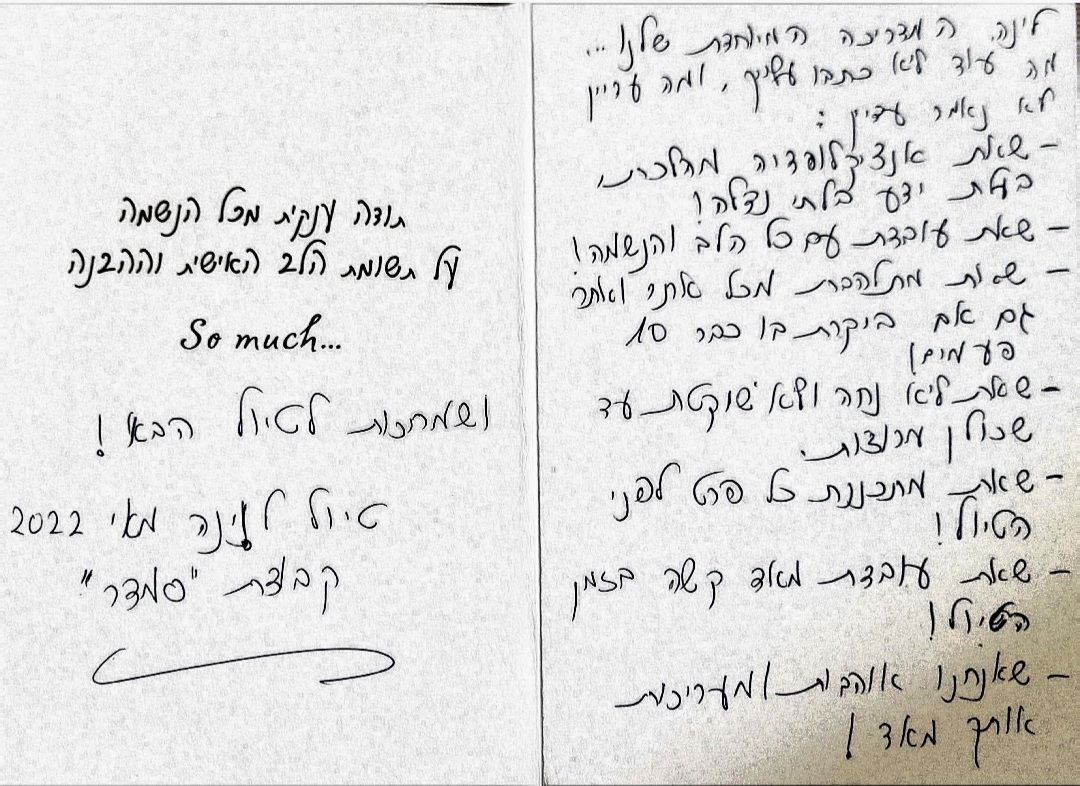 לינה, המדריכה המיוחדת שלנו...
מה עוד לא כתבו עליך, ומה עדיין
לא נאמר עדיין:
- שאת אנציקלופדיה מהלכת,
בעלת ידע בלתי נדלה!
- שאת עובדת עם כל הלב והנשמה!
- שאת מתלהבת מכל אתר ואתר
גם אם ביקרת בו כבר 10
פעמים!
- שאת לא נחה ולא שוקטת עד
שכולן מרוצות.
- שאת מתכננת כל פרט לפני
הטיול!
- שאת עובדת מאד קשה בזמן
הטיול!
- שאנחנו אוהבות ומעריכות
אותך מאד!
תודה ענקית מכל הנשמה
על תשומת הלב האישית וההבנה
So much...
ושמחכות לטיול הבא!
טיול לוינה מאי 2022
קבוצת "סמדר"